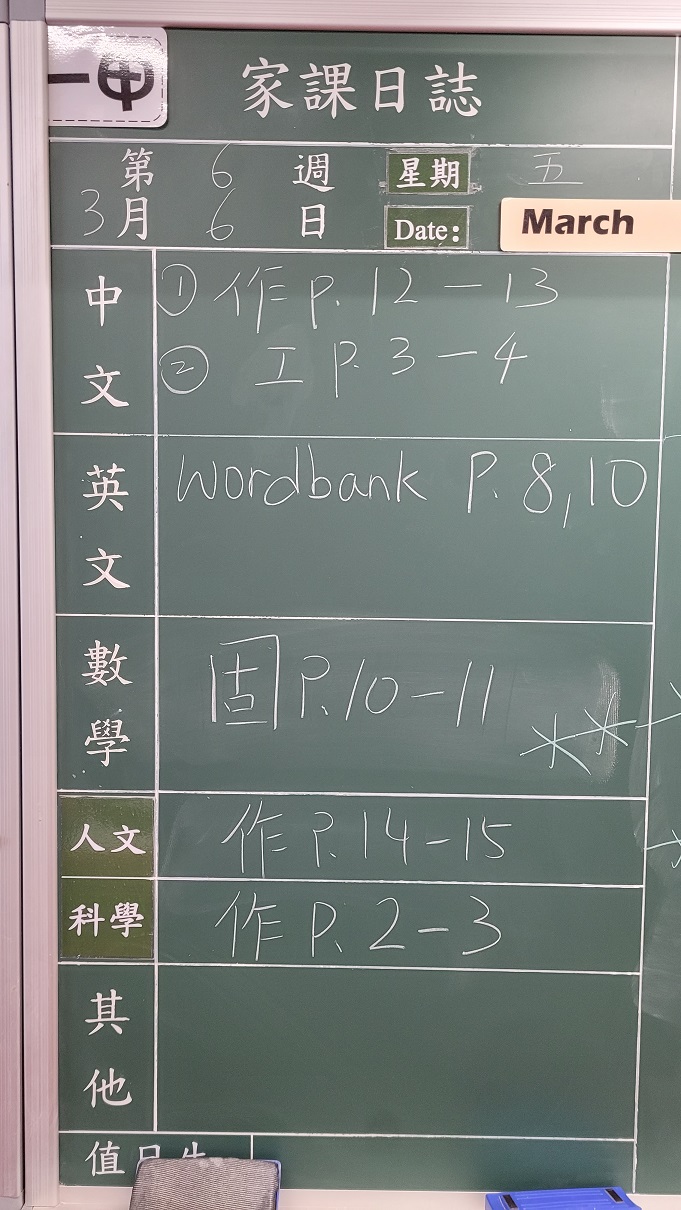 一甲
家課日誌
第 6 週 星期 五
3月 6 日 Date: March
中文 ① 作 P. 12 - 13
② 工 P. 3 - 4
英文 Wordbank P. 8, 10
數學 固 P. 10 - 11
***
人文 作 P. 14 - 15
科學 作 P. 2 - 3
其他
值日生